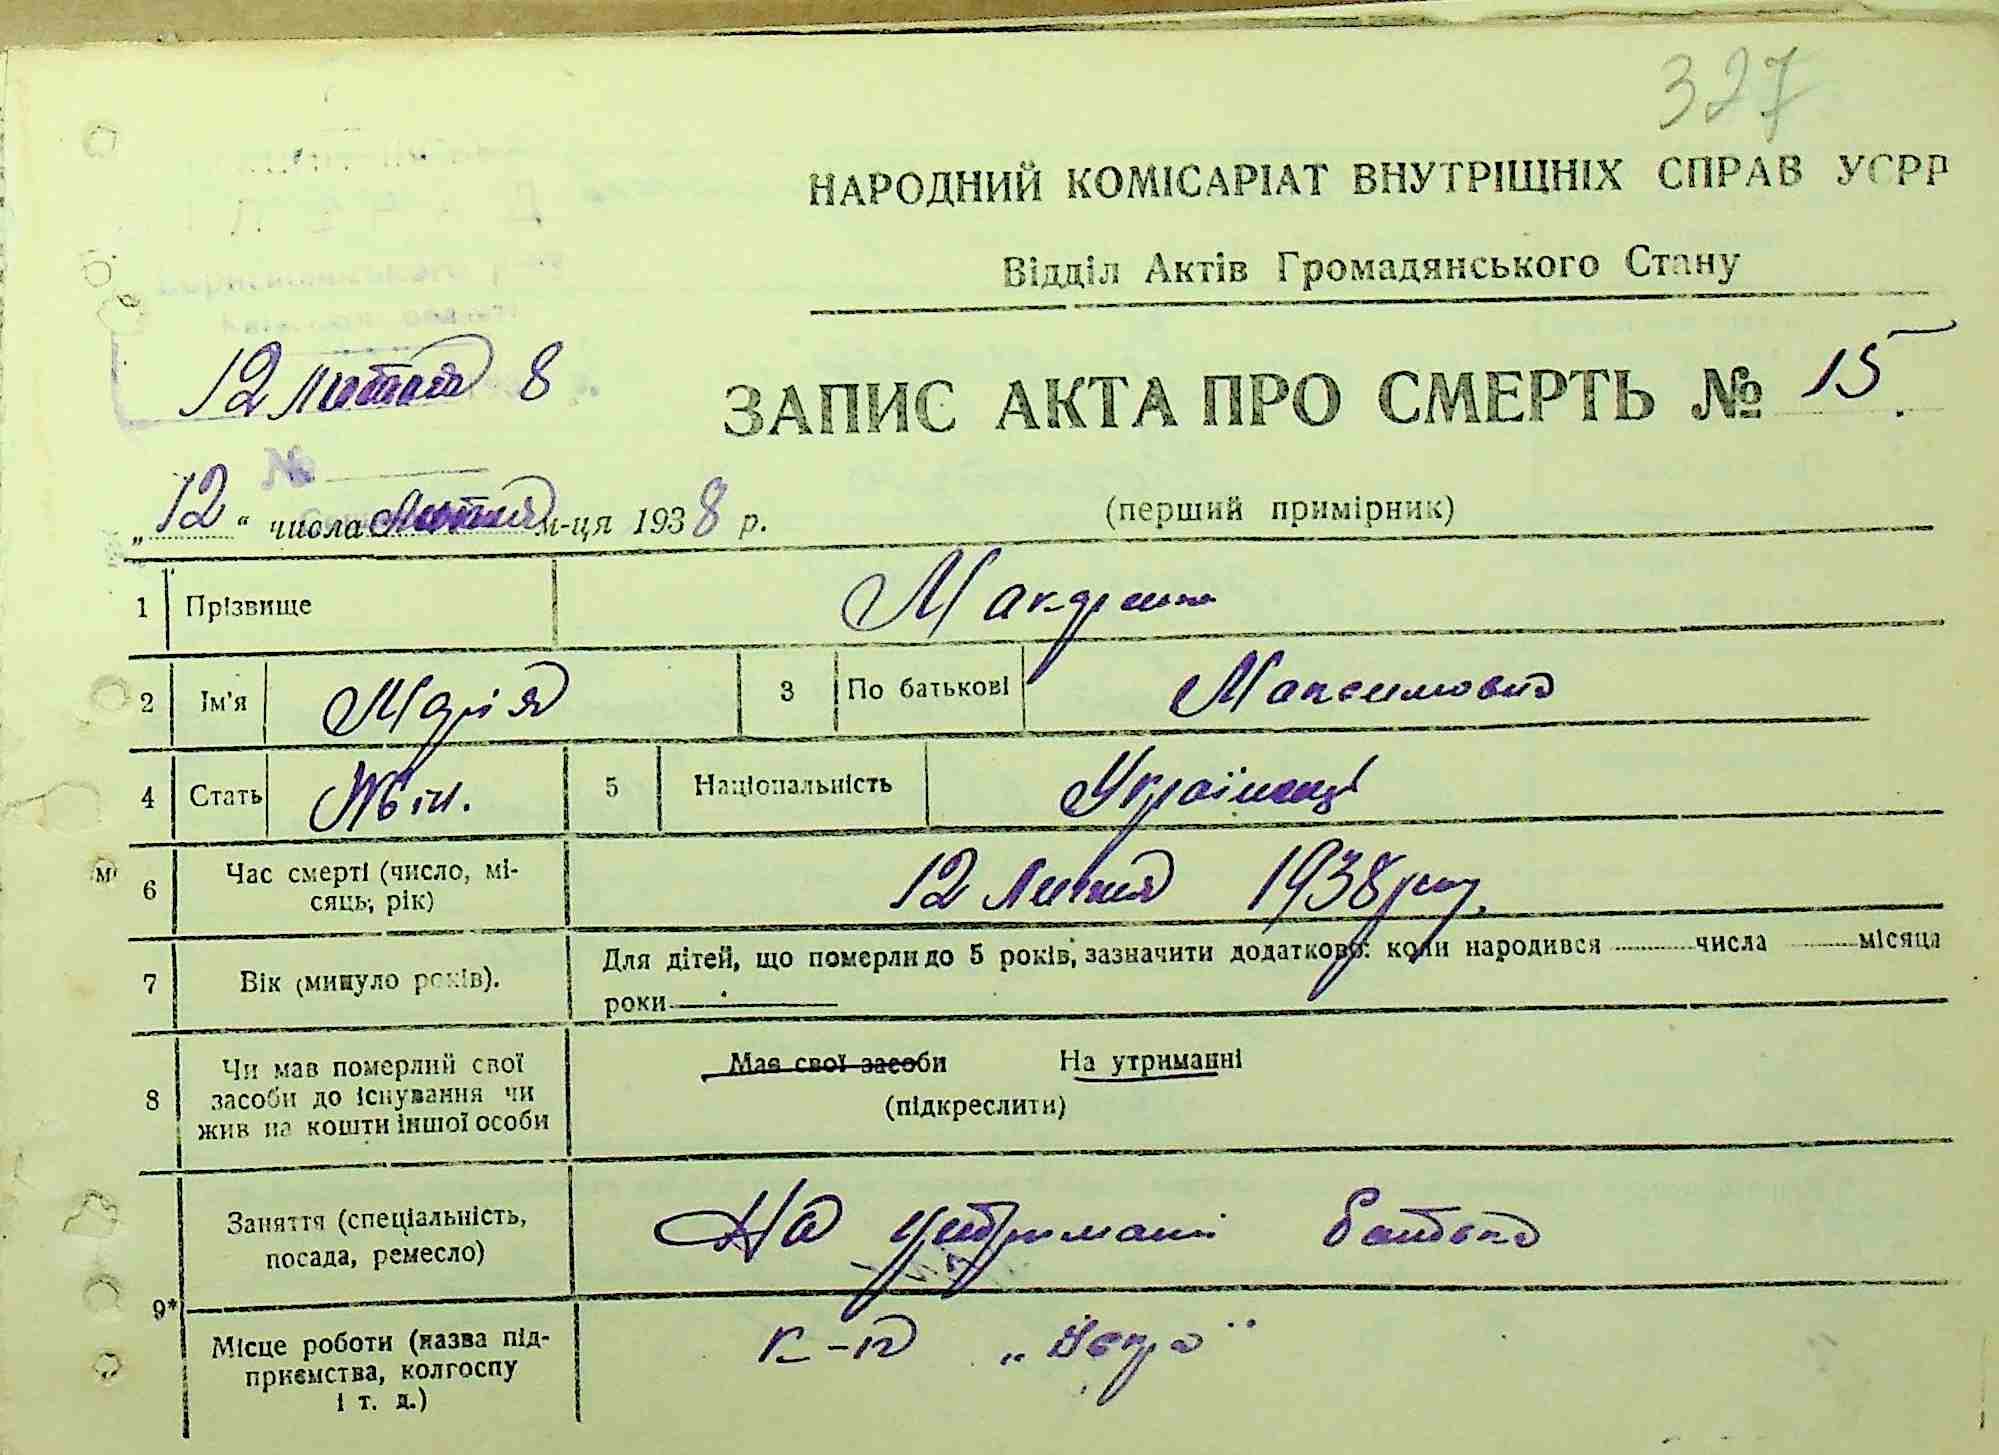 327
НАРОДНИЙ КОМІСАРІАТ ВНУТРІШНІХ СПРАВ УСРР
Відділ Актів Громадянського Стану
12 Лютого 8
ЗАПИС АКТА ПРО СМЕРТЬ № 15.
№
„12“ числа Лютня м-ця 1938 р.
(перший примірник)
1 Прізвище
2 Ім'я Марія 3 По батькові Максимовна
4 Стать Жін. 5 Національність
6 Час смерті (число, мі-
сяць, рік) 12 Лютня 1938 року.
7 Вік (минуло років). Для дітей, що померли до 5 років, зазначити додатково: коли народився числа місяця
роки
8 Чи мав померлий свої
засоби до існування чи
жив на кошти іншої особи
Має свої засоби На утриманні
(підкреслити)
9*
Заняття (спеціальність,
посада, ремесло)
На утримані батька
Місце роботи (назва під-
приємства, колгоспу
і т. д.)